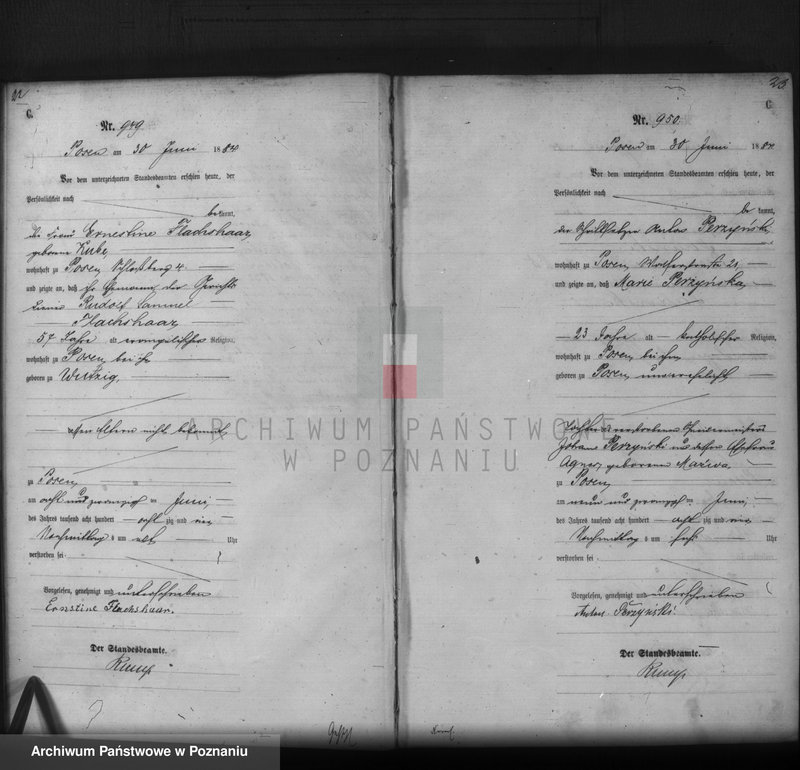 22
C.
Nr. 949
Posen am 30 Juni 1884
Vor dem unterzeichneten Standesbeamten erschien heute, der
Persönlichkeit nach
bekannt,
die Frau Ernestine Flachshaar,
geborene Kube,
wohnhaft zu Posen, Schloßberg 4
und zeigte an, daß ihr Ehemann, der Gerichts
Rudolf Samuel
Flachshaar,
57 Jahre alt evangelischer Religion,
wohnhaft zu Posen bei ihr
geboren zu
dessen Eltern nicht bekannt,
zu Posen,
am acht und zwanzigsten Juni,
des Jahres tausend acht hundert acht zig und vier
Nachmittags um elf Uhr
verstorben sei.
Vorgelesen, genehmigt und unterschrieben
Ernstine Flachshaar.
Der Standesbeamte.
23
C.
Nr. 950.
Posen am 30 Juni 1884
Vor dem unterzeichneten Standesbeamten erschien heute, der
Persönlichkeit nach
be kannt,
der Schriftsetzer Perzyński
wohnhaft zu Posen, 21
und zeigte an, daß Marie Perzyńska,
23 Jahre alt katholischer Religion,
wohnhaft zu Posen bei ihm
geboren zu Posen, unverehelicht
Tochter des verstorbenen
Johann Perzyński und dessen Ehefrau
Agnes, geborenen
zu Posen,
am neun und zwanzigsten Juni,
des Jahres tausend acht hundert acht zig und vier
Nachmittags um fünf Uhr
verstorben sei.
Vorgelesen, genehmigt und unterschrieben
Perzyński.
Der Standesbeamte.
ARCHIWUM PAŃSTWOWE
W POZNANIU
Archiwum Państwowe w Poznaniu